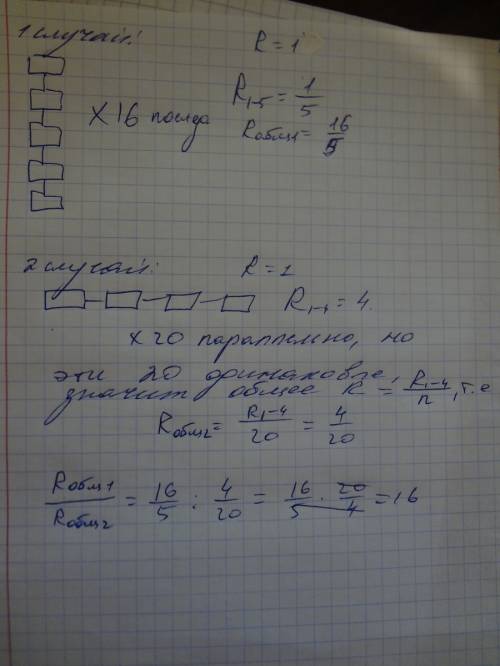 1 случай:
R = 1
R₁₋₅ = 1/5
X16 послед
Rобщ1 = 16/5
2 случай:
R = 1
R₁₋₄ = 4.
X20 параллельно, но
эти 20 одинаковые,
значит общее R = R₁₋₄/n, т.е
Rобщ2 = R₁₋₄/20 = 4/20
Rобщ1/Rобщ2 = 16/5 : 4/20 = 16/5 · 20/4 = 16